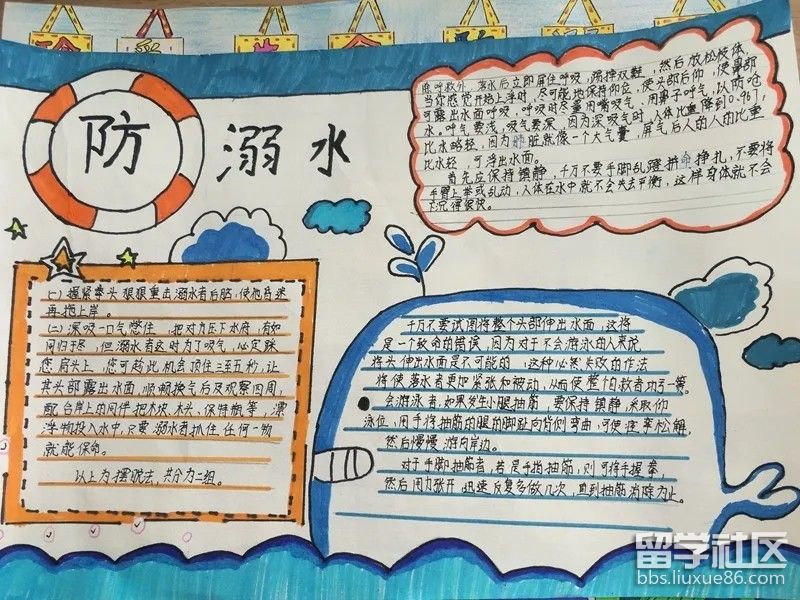 防溺水
除呼救外，落水后立即屏住呼吸，踢掉双鞋，然后放松肢体，
当你感觉开始上浮时，尽可能地保持仰位，使头部后仰，使鼻部
可露出水面呼吸，呼吸时尽量用嘴吸气、用鼻子呼气，以防呛
水。呼气要浅，吸气要深。因为深吸气时，人体比重降到0.967，
比水略轻，因为肺脏就像一个大气囊，屏气后人的人的比重
比水轻，可浮出水面。
首先应保持镇静，千万不要手脚乱蹬拼命挣扎，不要将
手臂上举或乱动，人体在水中就不会失去平衡，这样身体就不会
下沉得很快。
(一)握紧拳头狠狠重击溺水者后脑，使他昏迷
再拖上岸。
(二)深吸一口气憋住，把对方压下水底，有如
同归于尽，但溺水者这时为了吸气，必定踩
您肩头上，您可趁此机会顶住三至五秒，让
其头部露出水面，顺畅换气后及观察四周，
配合岸上的同伴把木块、木头、保特瓶等，漂
浮物投入水中，只要溺水者抓住任何一物
就能保命。
以上为摆脱法，共分为二组。
千万不要试图将整个头部伸出水面，这将
是一个致命的错误，因为对于不会游泳的人来说
将头伸出水面是不可能的，这种必然失败的作法
将使落水者更加紧张和被动，从而使整个自救者功亏一篑。
会游泳者，如果发生小腿抽筋，要保持镇静，采取仰
泳位，用手将抽筋的腿的脚趾向背侧弯曲，可使痉挛松解，
然后慢慢游向岸边。
对于手脚抽筋者，若是手指抽筋，则可将手握拳，
然后用力张开，迅速反复多做几次，直到抽筋消除为止。
留学社区
bbs.liuxue86.com